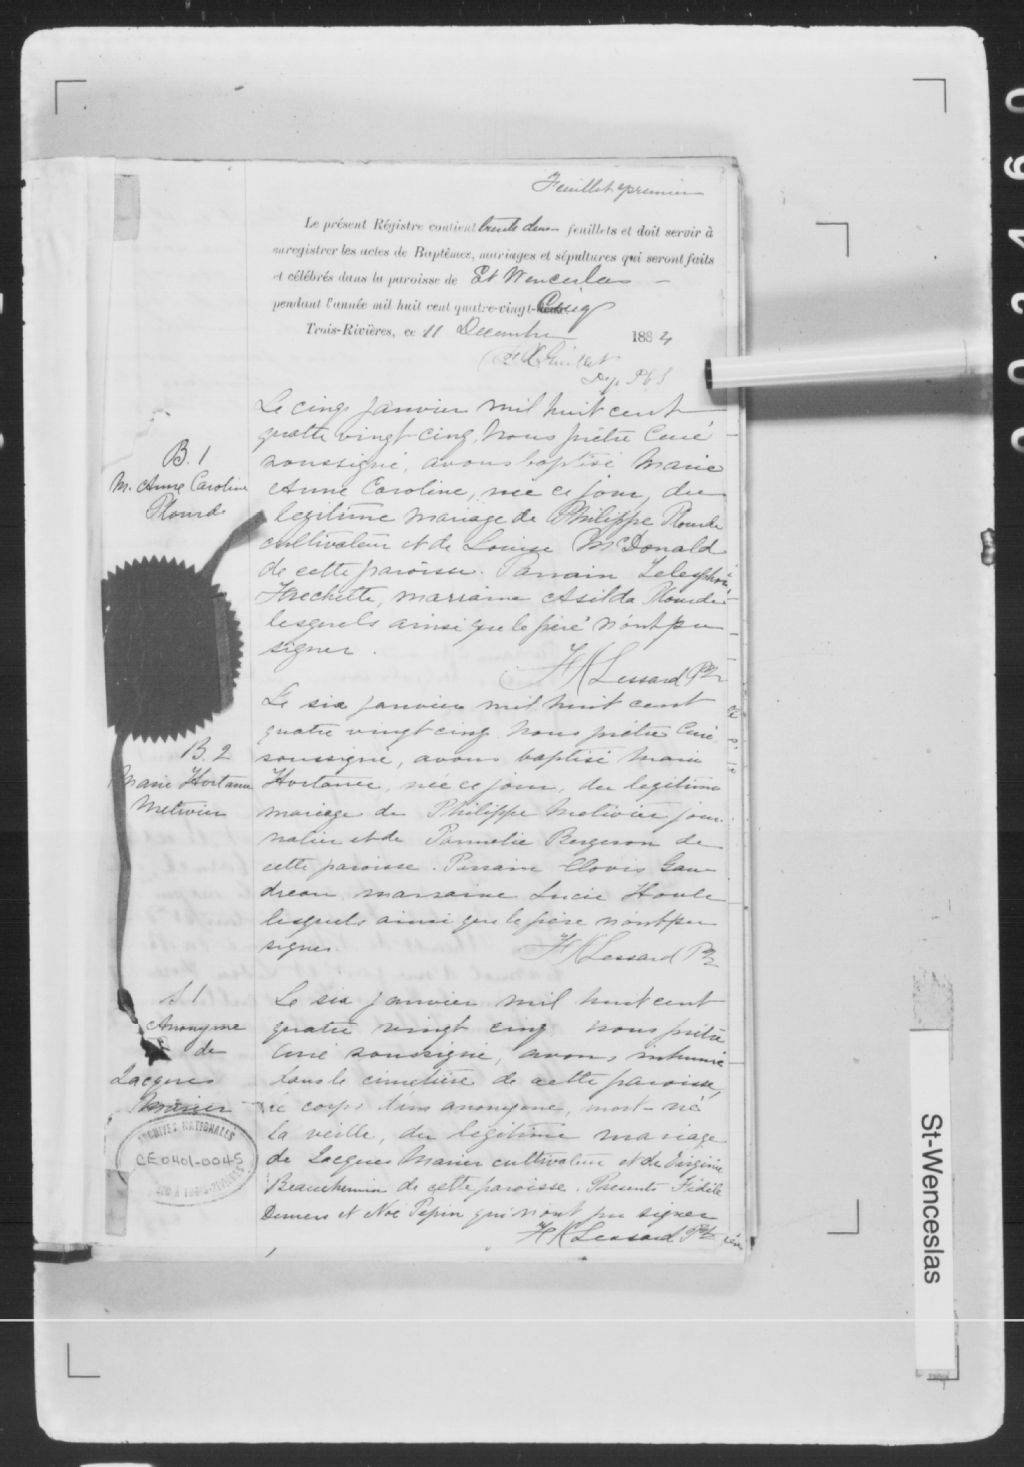 Feuillet premier
Le présent Régistre contient trente deux feuillets et doit servir à
enregistrer les actes de Baptêmes, mariages et sépultures qui seront faits
et célébrés dans la paroisse de St Wenceslas
pendant l'année mil huit cent quatre-vingt-Cinq
Trois-Rivières, ce 11 Decembre 1884
Dep. P C S
Le cinq janvier mil huit cent
quatre vingt-cinq, Nous prêtre Curé
soussigné, avons baptisé Marie
B. 1
M. Anne Caroline
Plourde
Anne Caroline, née ce jour, du
legitime mariage de Philippe Plourde
cultivateur et de Louise McDonald
de cette paroisse. Parrain Telesphore
Frechette, marraine Asilda Plourde
lesquels ainsi que le père n'ont pu
signer.
Lessard Ptr
Le six janvier mil huit cent
quatre vingt cinq Nous prêtre Curé
B. 2
Marie Hortance
Metivier
soussigné, avons baptisé Marie
Hortance, née ce jour, du legitime
mariage de Philippe Metivier jour-
nalier et de Parmelie Bergeron de
cette paroisse. Parrain Clovis Gau-
dreau marraine Lucie Houle
lesquels ainsi que le père n'ont pu
signer.
Lessard Ptr
S 1
Anonyme
de
Jacques
Marier
Le six janvier mil huit cent
quatre vingt cinq nous prêtre
Curé soussigné, avons inhumé
dans le cimetière de cette paroisse,
le corps d'un anonyme, mort-né
la veille, du legitime mariage
de Jacques Marier cultivateur et de Virginie
Beauchemin de cette paroisse. Présents Fidèle
Demers et Noé Pepin qui n'ont pu signer
Lessard Ptr
ARCHIVES NATIONALES
CE0401-0045
St-Wenceslas